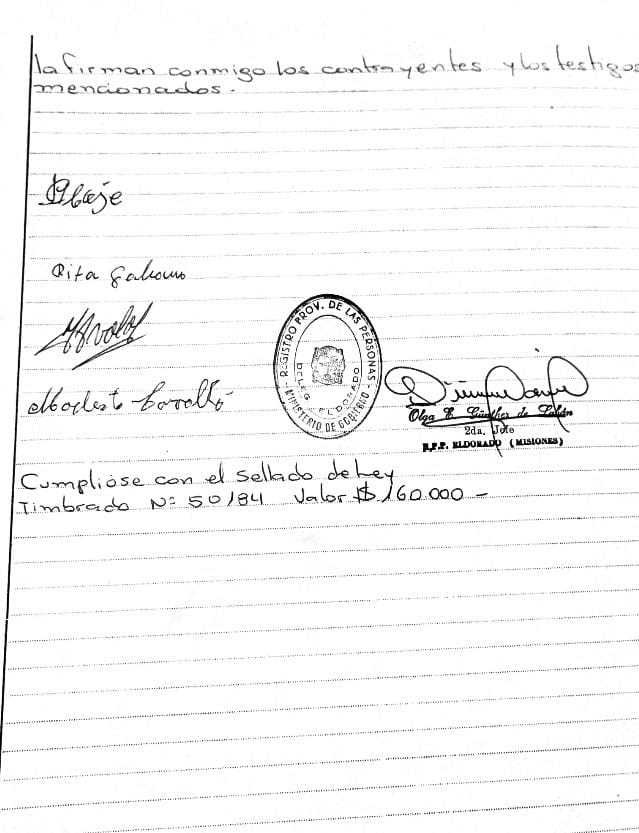 la firman conmigo los contrayentes y los testigos
mencionados.
Rita
Modesto
REGISTRO PROV. DE LAS PERSONAS
DELEG. ELDORADO
MINISTERIO DE GOBIERNO
Olga E. Günther de
2da. Jefe
R.P.P. ELDORADO (MISIONES)
Cumplióse con el sellado de Ley
Timbrado Nº 50184 Valor $ 160.000 -